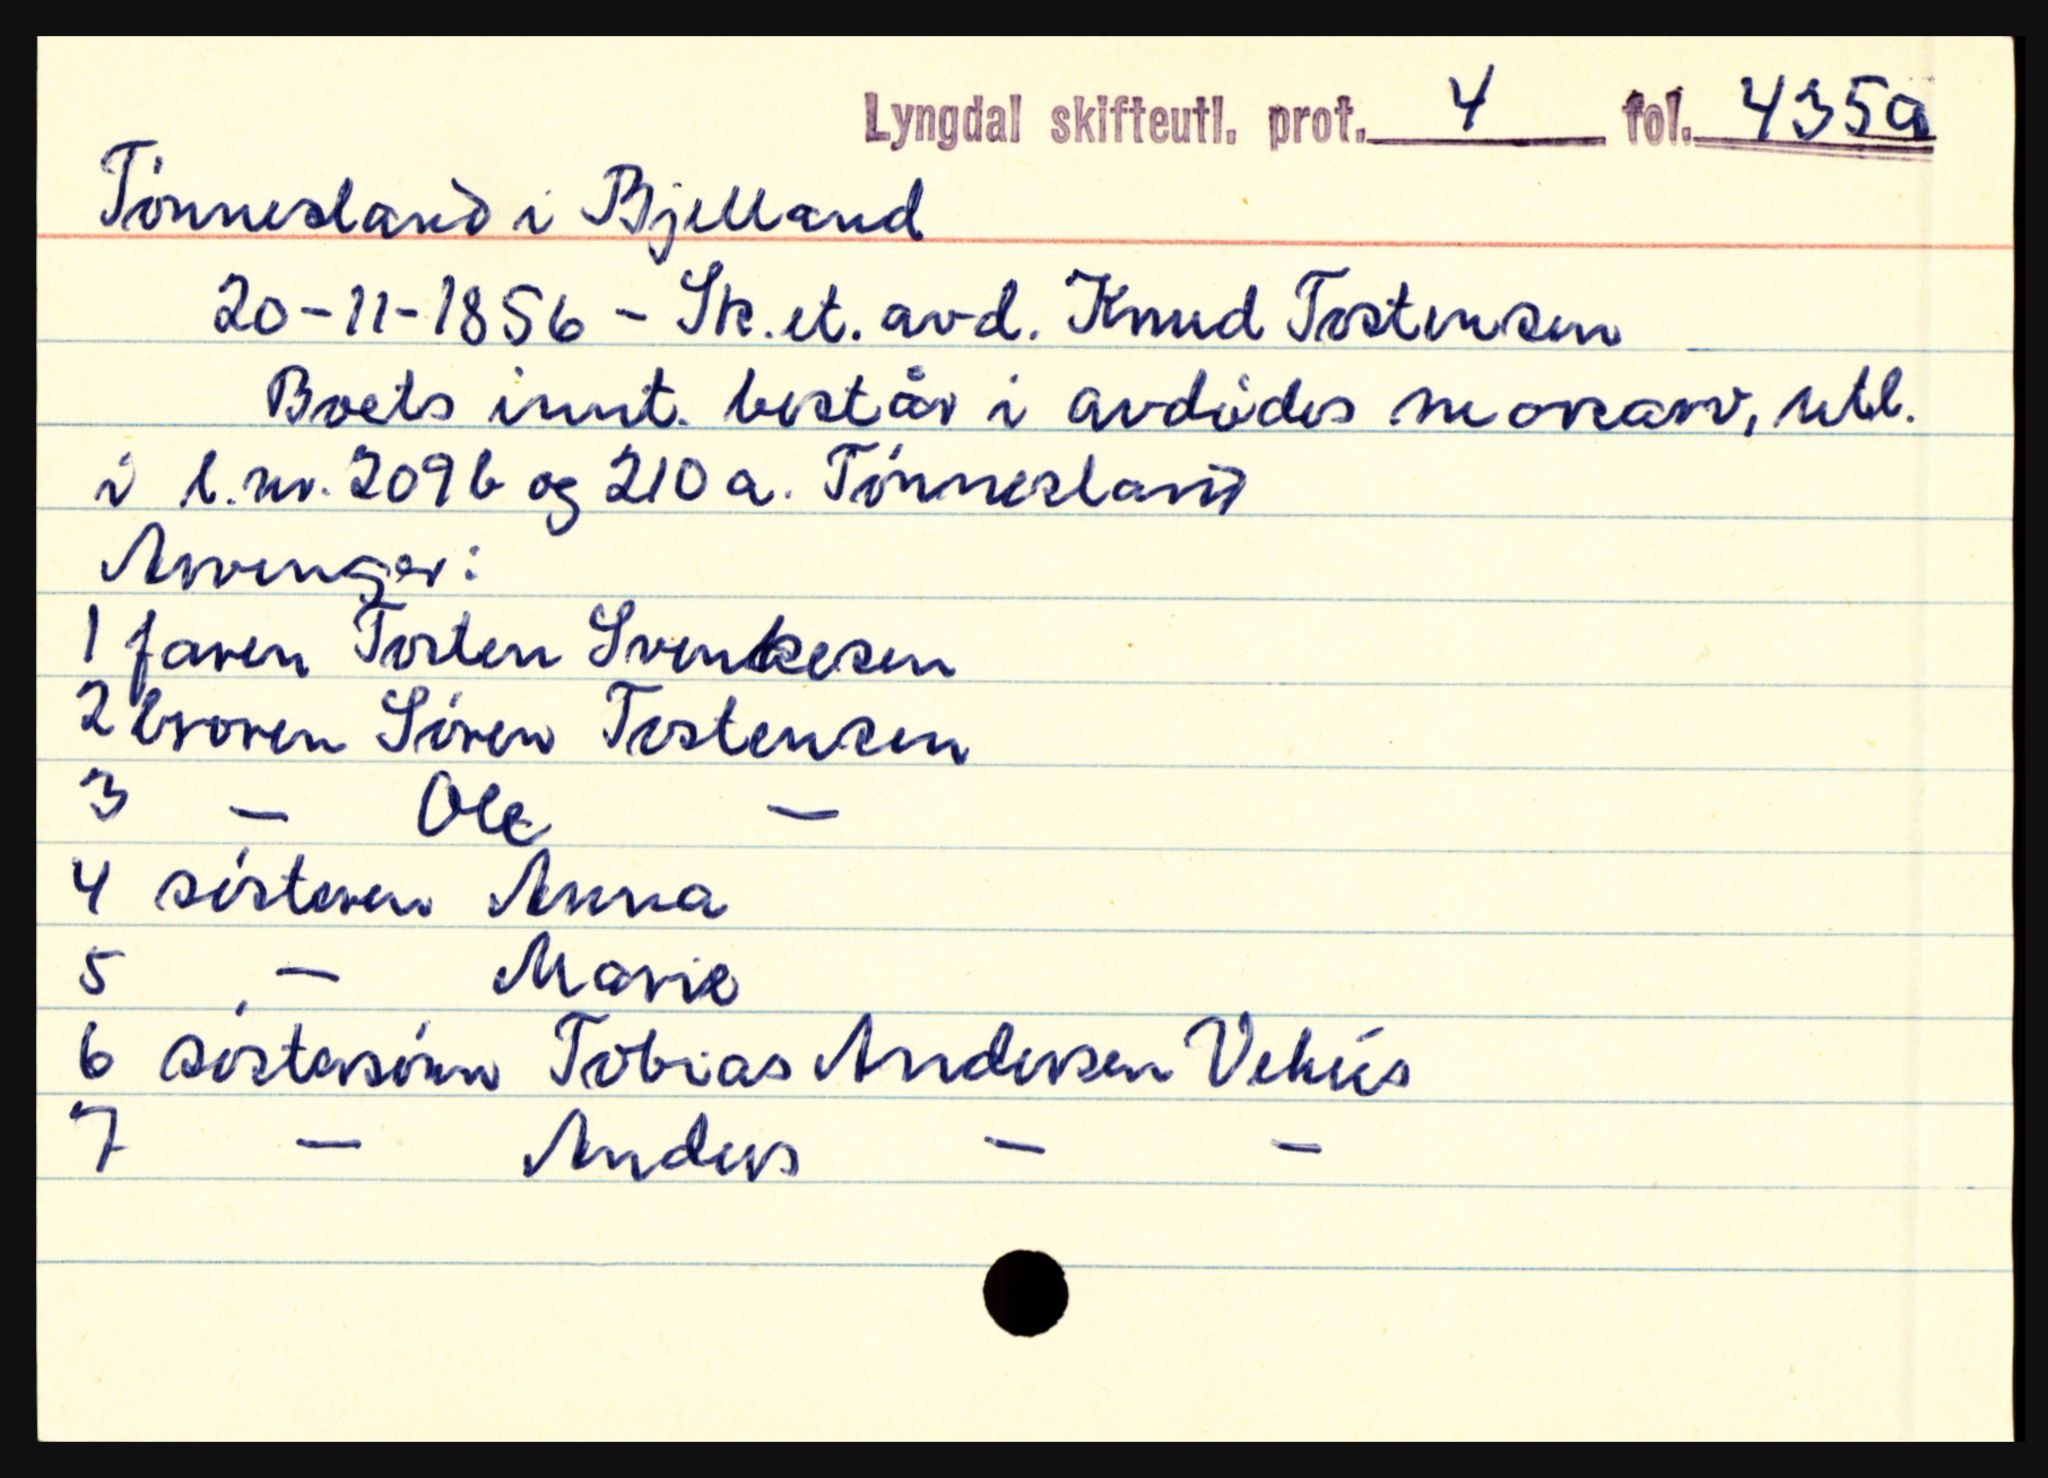 Lyngdal skifteutl. prot. 4 fol. 435a
Tónnesland i Bjelland
20-11-1856 - Sk. et. avd. Knud Tostensen
Boets innt. består i avdódes morsarv, utl.
i l.nr. 209b og 210a. Tónnesland
Arvinger:
1 faren Tosten Svenkesen
2 broren Sóren Tostensen
3 - Ole -
4 sósteren Anna
5 - Marie
6 sóstersónn Tobias Andersen
7 - Anders - -